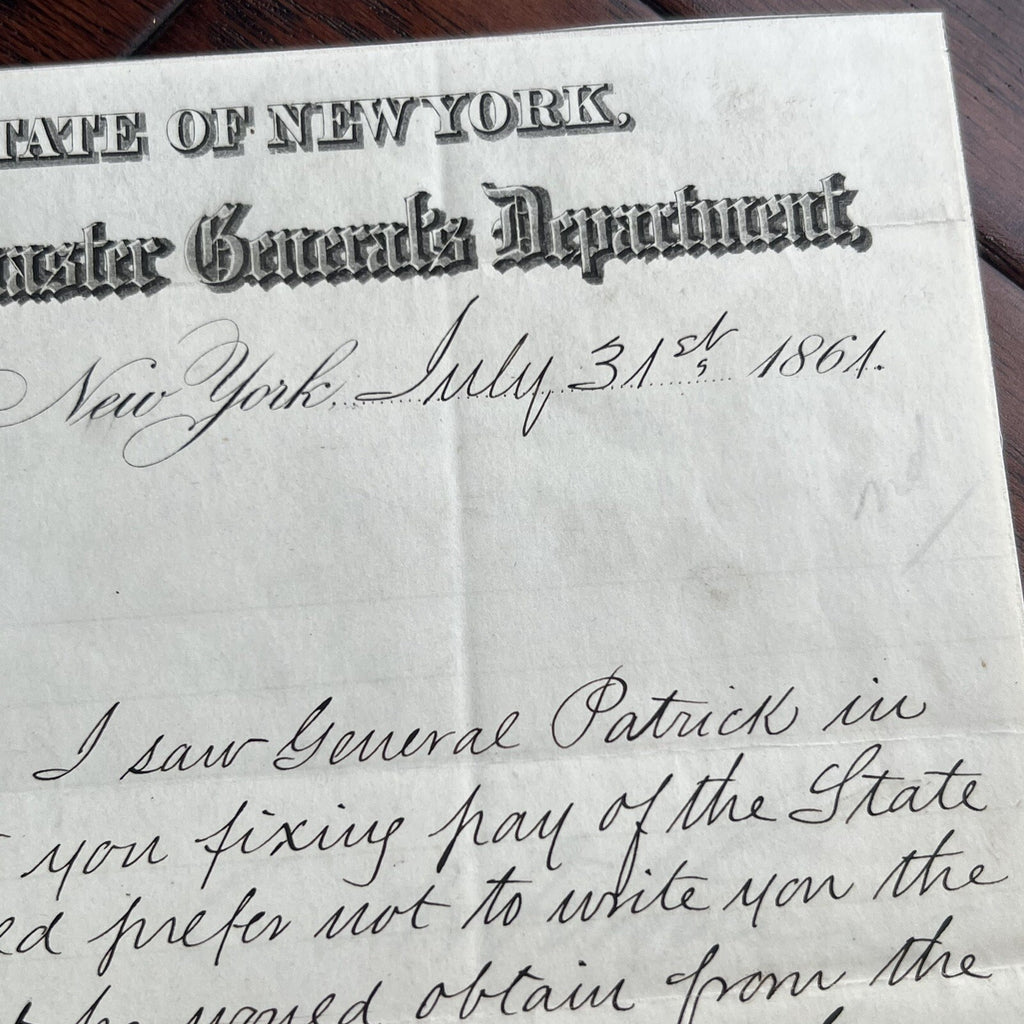 TATE OF NEW YORK,
aster General's Department,
New York, July 31st 1861.
I saw General Patrick in
you fixing pay of the State
ed prefer not to write you the
he would obtain from the